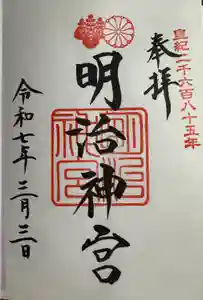 皇紀二千六百八十五年
奉拝
明治神宮
令和七年二月三日